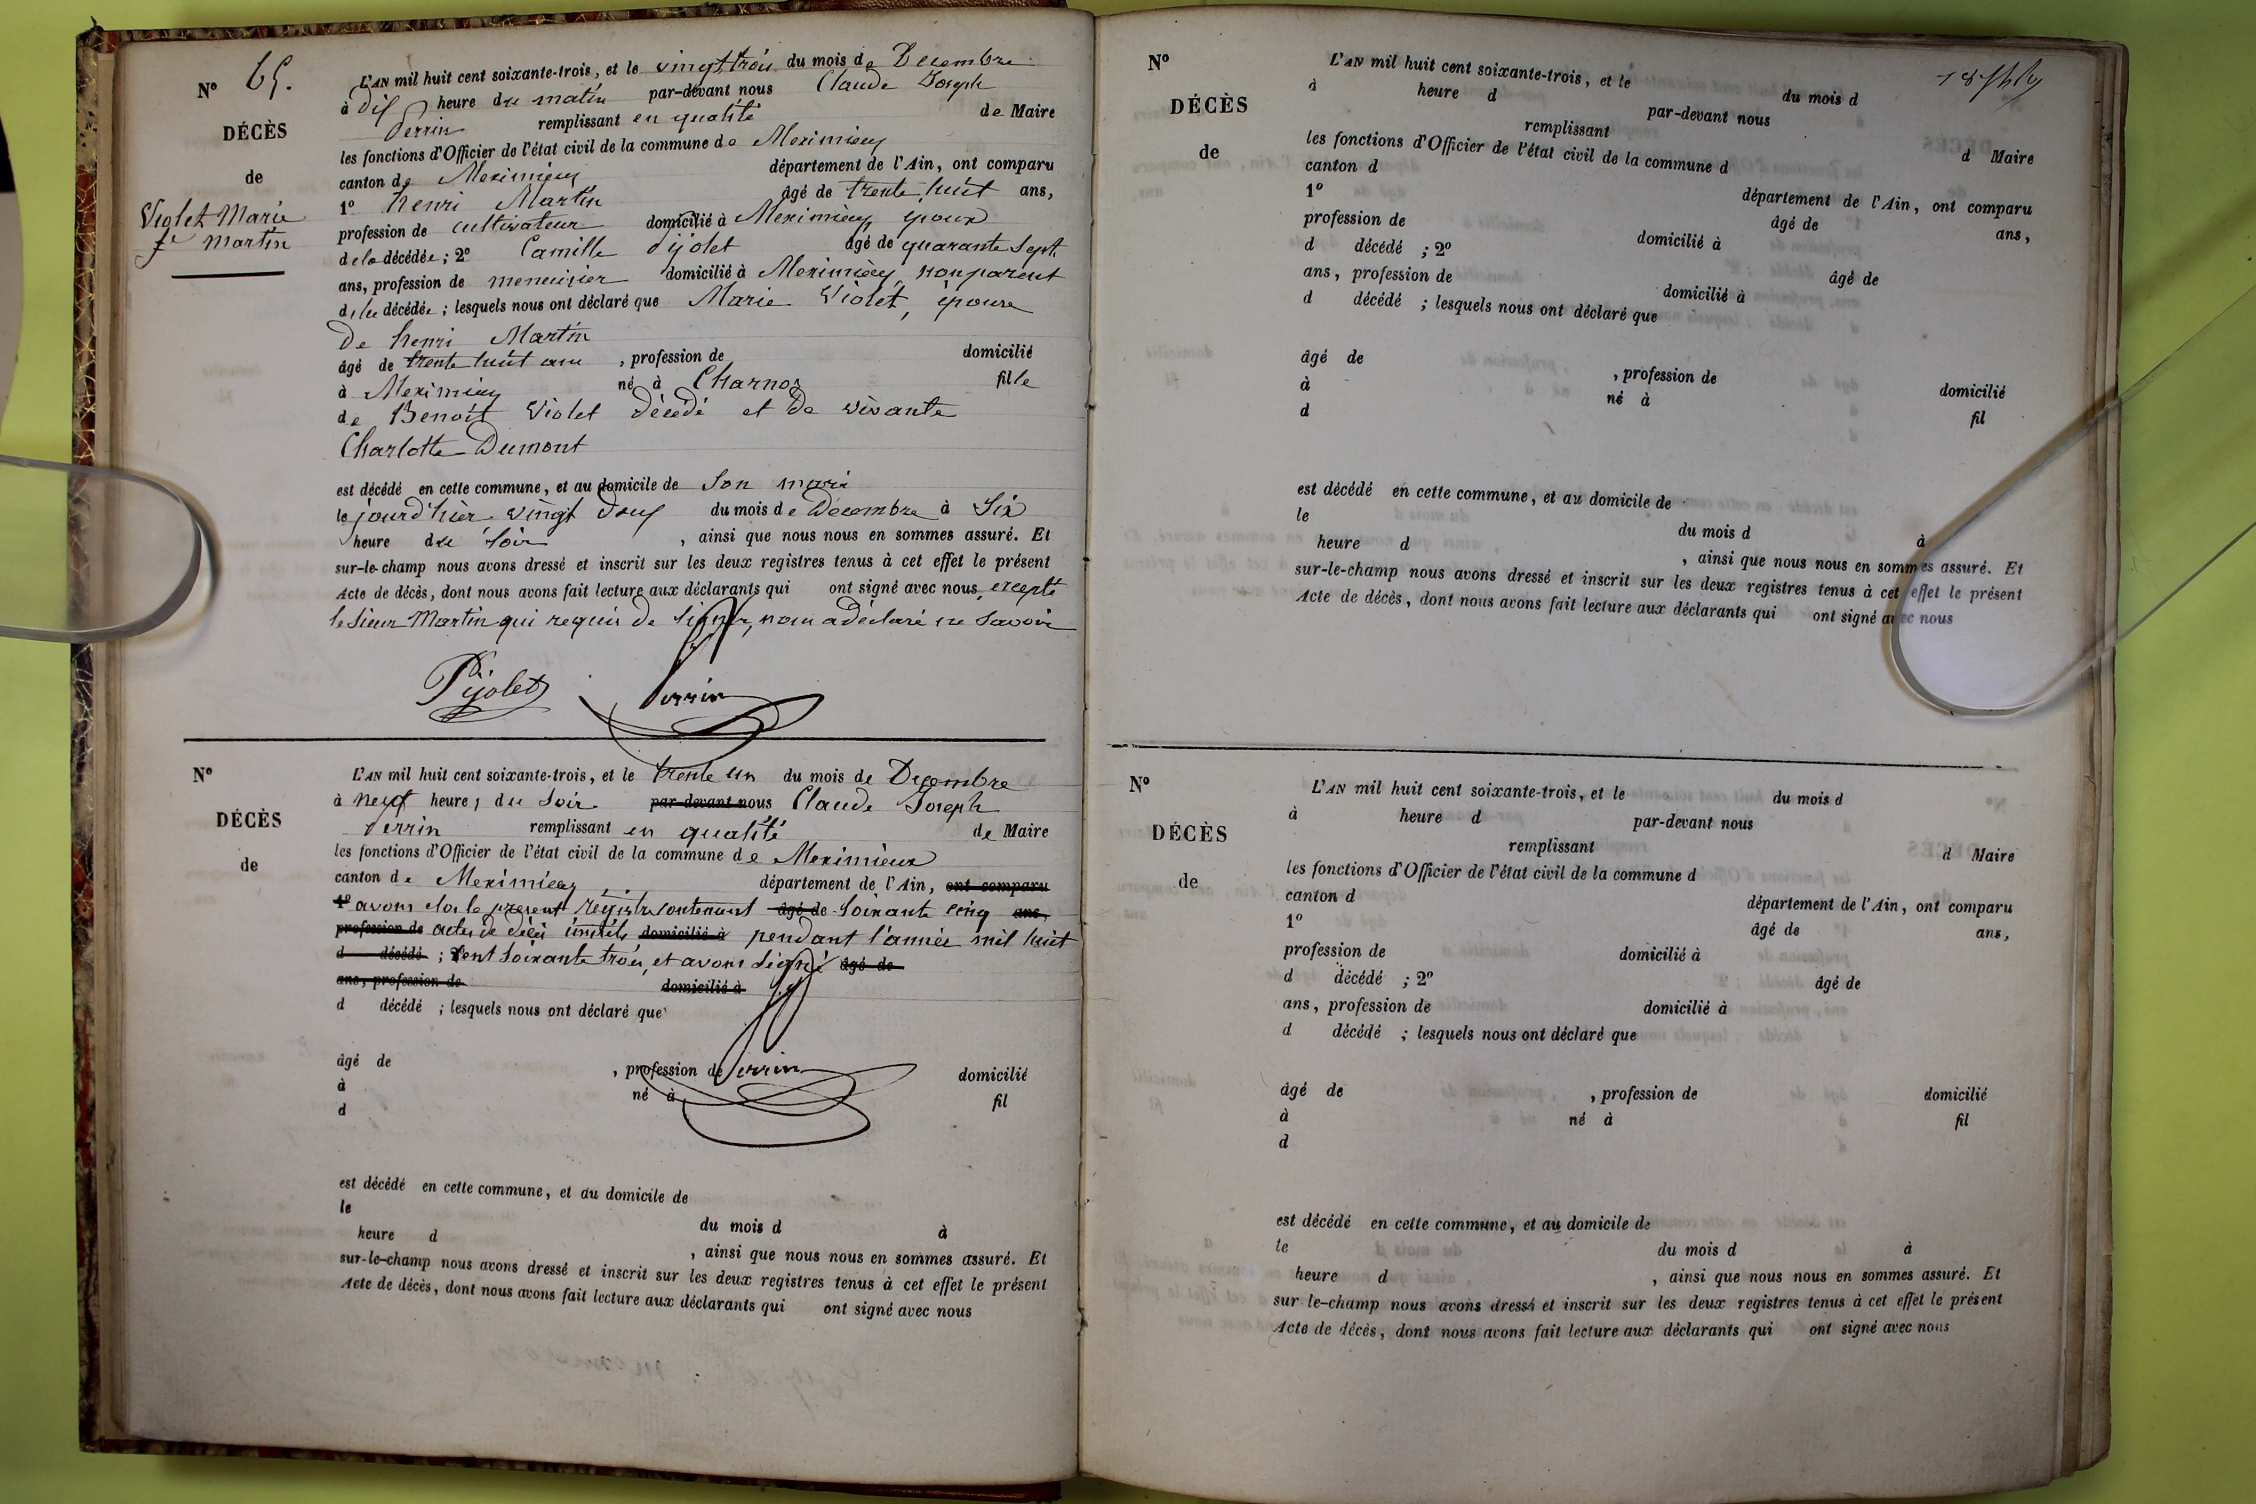 N° 65.
DÉCÈS
de
Violet Marie
fe Martin
L'AN mil huit cent soixante-trois, et le vingt trois du mois de Décembre
à dix heure du matin par-devant nous Claude Joseph
Perrin remplissant en qualité de Maire
les fonctions d'Officier de l'état civil de la commune de Meximieux
canton de Meximieux département de l'Ain, ont comparu
1° henri Martin âgé de trente huit ans,
profession de cultivateur domicilié à Meximieux, époux
de la décédée ; 2° Camille Pijolet âgé de quarante sept
ans, profession de menuisier domicilié à Meximieux, non parent
de la décédée ; lesquels nous ont déclaré que Marie Violet, épouse
de henri Martin
âgé de trente huit ans , profession de domicilié
à Meximieux né à Charnoz fille
de Benoît Violet décédé et de vivante
Charlotte Dumont
est décédé en cette commune, et au domicile de son mari
le jourd'hier vingt deux du mois de Décembre à Six
heure du soir , ainsi que nous nous en sommes assuré. Et
sur-le-champ nous avons dressé et inscrit sur les deux registres tenus à cet effet le présent
Acte de décès, dont nous avons fait lecture aux déclarants qui ont signé avec nous, excepté
le sieur Martin qui requis de signer, nous a déclaré ne savoir
Pijolet Perrin
N°
DÉCÈS
de
L'AN mil huit cent soixante-trois, et le trente un du mois de Décembre
à neuf heures du soir par-devant nous Claude Joseph
Perrin remplissant en qualité de Maire
les fonctions d'Officier de l'état civil de la commune de Meximieux
canton de Meximieux département de l'Ain, ont comparu
1° avons clos le present registre contenant âgé de soixante cinq ans,
profession de actes de décès inscrits domicilié à pendant l'année mil huit
d décédé ; cent soixante trois, et avons signé âgé de
ans, profession de domicilié à
d décédé ; lesquels nous ont déclaré que
âgé de , profession de domicilié
Perrin
à né à fil
d
est décédé en cette commune, et au domicile de
le du mois d à
heure d , ainsi que nous nous en sommes assuré. Et
sur-le-champ nous avons dressé et inscrit sur les deux registres tenus à cet effet le présent
Acte de décès, dont nous avons fait lecture aux déclarants qui ont signé avec nous
N°
DÉCÈS
de
L'AN mil huit cent soixante-trois, et le du mois d
à heure d par-devant nous
remplissant d Maire
les fonctions d'Officier de l'état civil de la commune d
canton d département de l'Ain, ont comparu
1° âgé de ans,
profession de domicilié à
d décédé ; 2° âgé de
ans, profession de domicilié à
d décédé ; lesquels nous ont déclaré que
âgé de , profession de domicilié
à né à fil
d
est décédé en cette commune, et au domicile de
le du mois d à
heure d , ainsi que nous nous en sommes assuré. Et
sur-le-champ nous avons dressé et inscrit sur les deux registres tenus à cet effet le présent
Acte de décès, dont nous avons fait lecture aux déclarants qui ont signé avec nous
N°
DÉCÈS
de
L'AN mil huit cent soixante-trois, et le du mois d
à heure d par-devant nous
remplissant d Maire
les fonctions d'Officier de l'état civil de la commune d
canton d département de l'Ain, ont comparu
1° âgé de ans,
profession de domicilié à
d décédé ; 2° âgé de
ans, profession de domicilié à
d décédé ; lesquels nous ont déclaré que
âgé de , profession de domicilié
à né à fil
d
est décédé en cette commune, et au domicile de
le du mois d à
heure d , ainsi que nous nous en sommes assuré. Et
sur-le-champ nous avons dressé et inscrit sur les deux registres tenus à cet effet le présent
Acte de décès, dont nous avons fait lecture aux déclarants qui ont signé avec nous